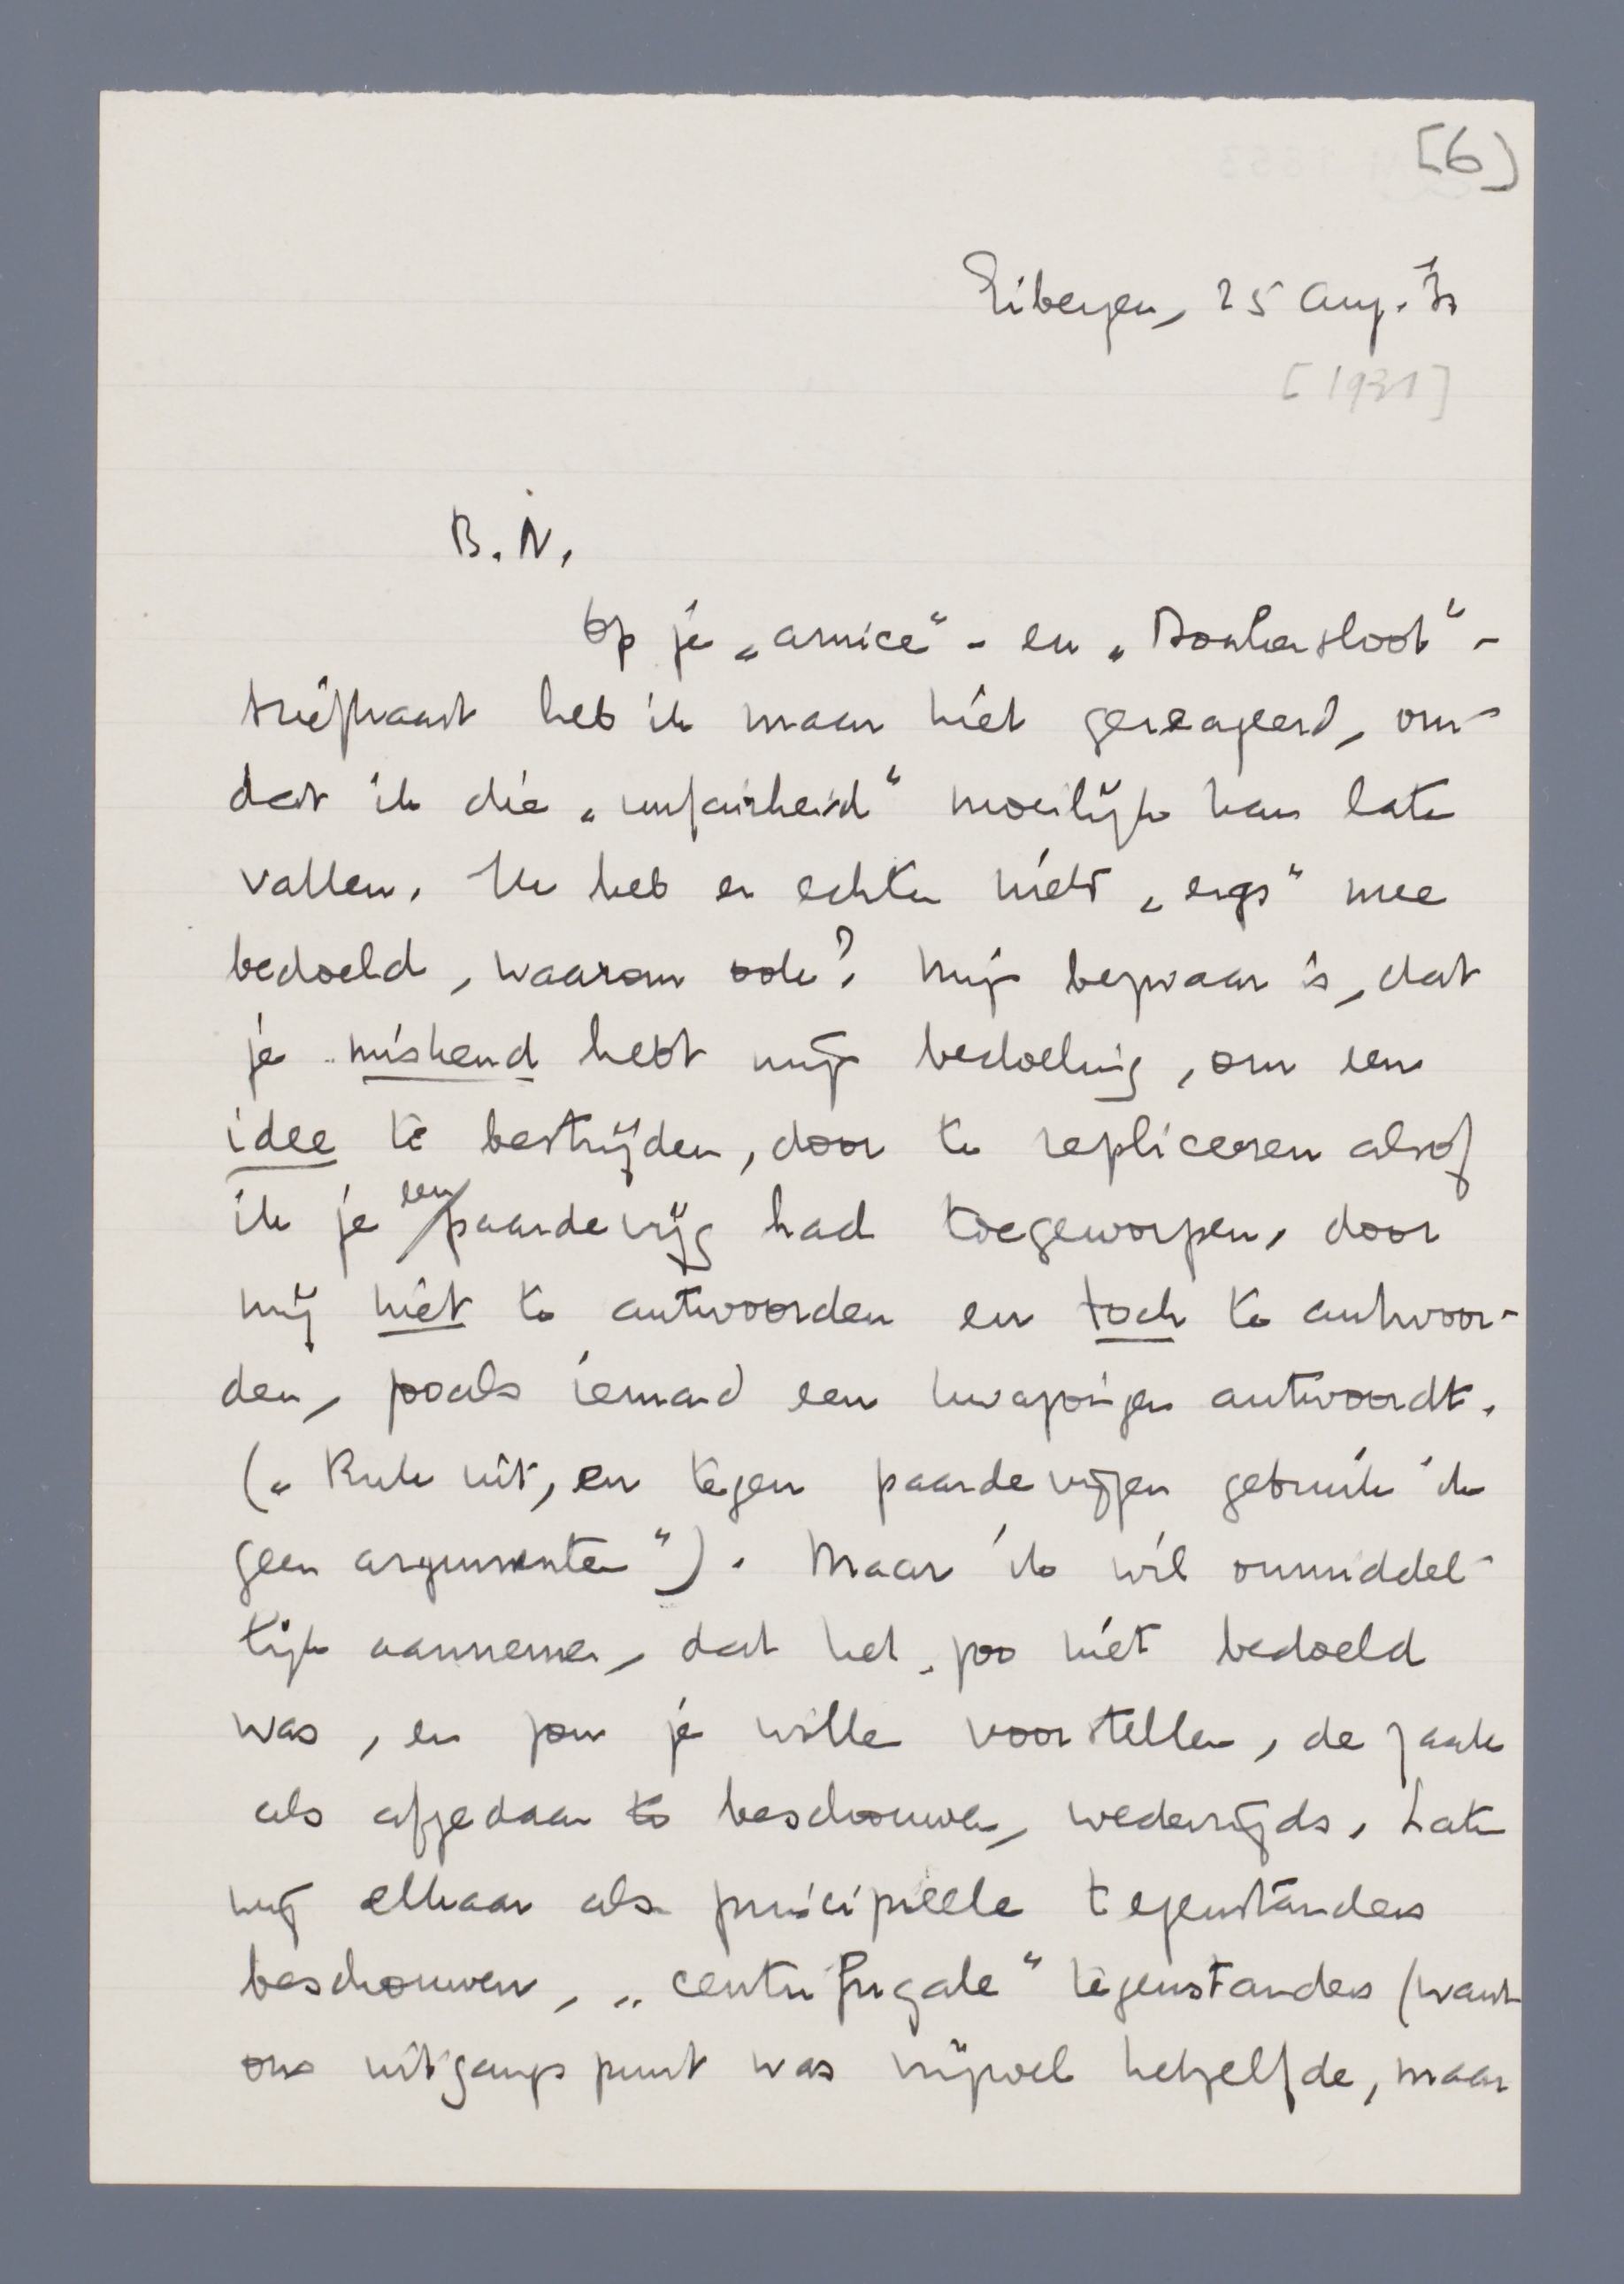 [6]
Eibergen, 25 Aug. '31
[1931]
B.N.
Op je „amice” - en „Donkersloot” -
briefkaart heb ik maar niet gereageerd, om-
dat ik die „unfairheid” moeilijk kan laten
vallen. Ik heb er echter niets „ergs” mee
bedoeld, waarom ook? Mijn bezwaar is, dat
je miskend hebt mijn bedoeling, om een
idee te bestrijden, door te repliceeren alsof
ik je een paardevijg had toegeworpen, door
mij niet te antwoorden en toch te antwoor-
den, zooals iemand een kwajongen antwoordt.
(„Ruk uit, en tegen paardevijgen gebruik ik
geen argumenten”). Maar ik wil onmiddel-
lijk aannemen, dat het zoo niet bedoeld
was, en zou je willen voorstellen, de zaak
als afgedaan te beschouwen, wederzijds. Laten
wij elkaar als principieele tegenstanders
beschouwen, „centrifugale” tegenstanders (want
ons uitgangspunt was vrijwel hetzelfde, maar